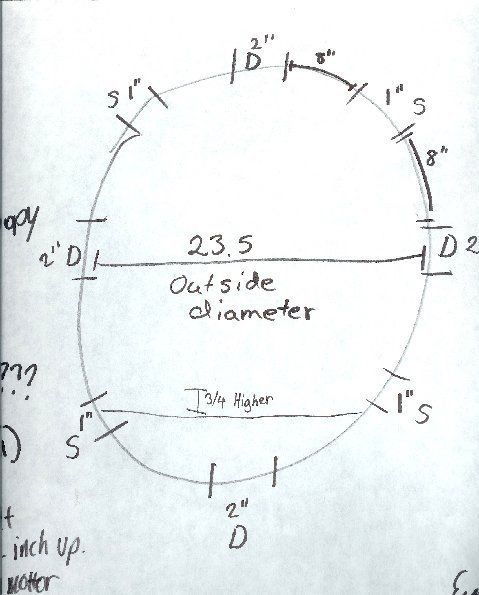 2"
D
8"
S 1"
1" S
8"
opy
2" D
D 2
23.5
Outside
diameter
???
3/4 Higher
1"
S
1" S
2"
D
t
- inch up.
matter